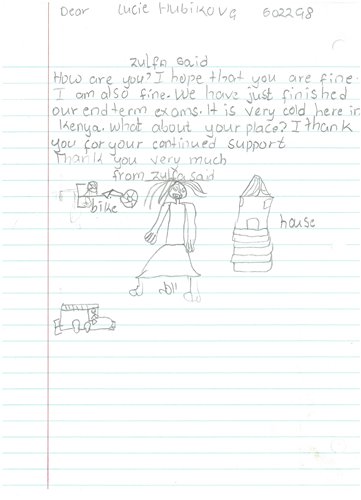 Dear Lucie Hubikova 602298
zulfa said
How are you? I hope that you are fine.
I am also fine. We have just finished
our end term exams. It is very cold here in
Kenya. What about your place? I thank
you for your continued support
Thank you very much
from zulfa said
bike
house
doll